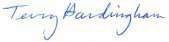 Terry Hardingham